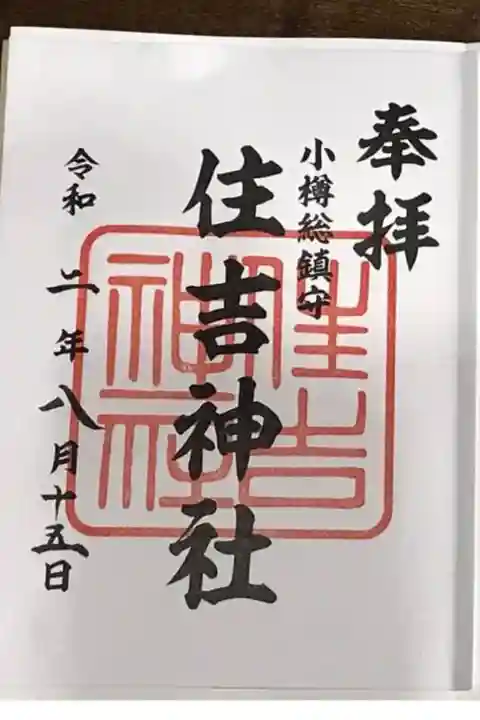 奉拝
小樽総鎮守
住吉神社
住吉神社
令和二年八月十五日